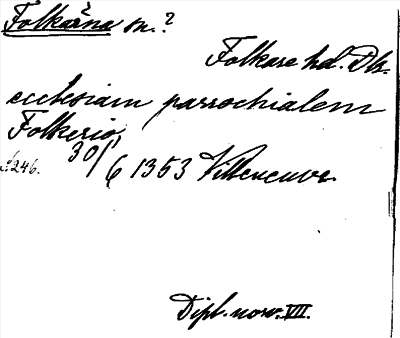 Folkärna sn.?
Folkare hd. Db.
ecclesiam parrochialem
Folkerio,
s. 246. 30/6 1353 Villeneuve
Dipl. norv. VII.